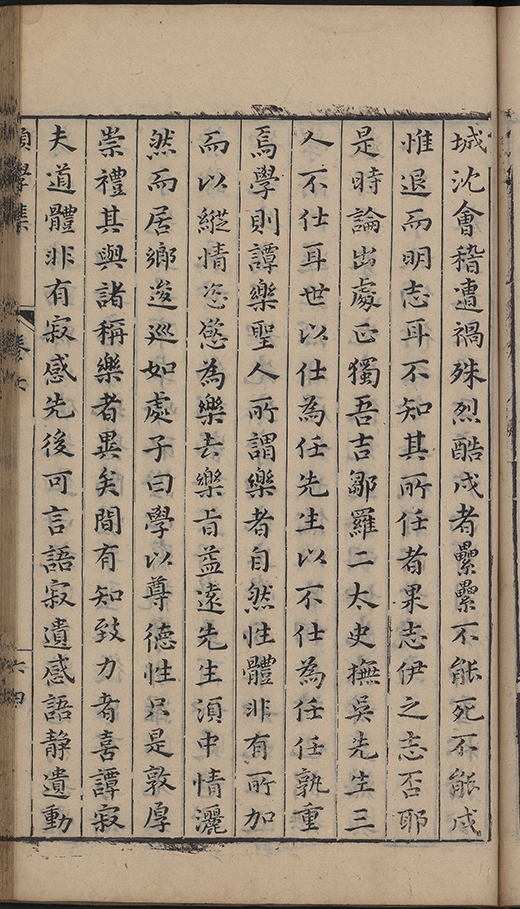 城沈會稽遭禍殊烈酷戍者纍纍不能死不能戍
惟退而明志耳不知其所任者果志伊之志否耶
是時論出處正獨吾吉鄒羅二太史撫吳先生三
人不仕耳世以仕為任先生以不仕為任任孰重
焉學則譚樂聖人所謂樂者自然性體非有所加
而以縱情恣慾為樂去樂旨益遠先生湏中情灑
然而居鄉逡巡如處子曰學以尊德性只是敦厚
崇禮其與諸稱樂者異矣間有知致力者喜譚寂
夫道體非有寂感先後可言語寂遺感語靜遺動
願學集
卷六
六四